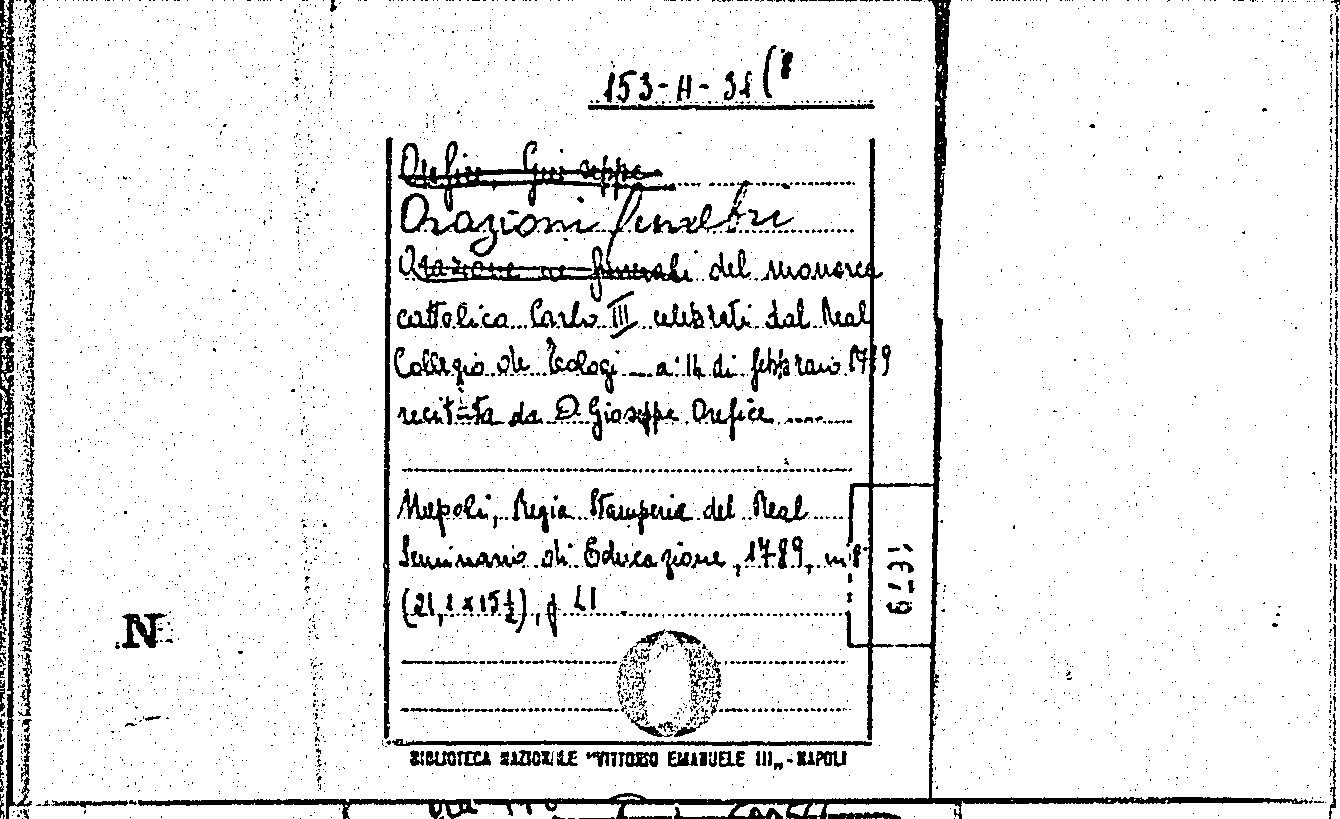 153-H-31(8
Orefice, Giuseppe
Orazioni funebri
Orazione ne funerali del monarca
cattolica Carlo III celebrati dal Real
Collegio de Teologi — a' 14 di febbraio 1789
recitata da D. Giuseppe Orefice
Napoli, Regia Stamperia del Real
Seminario di Educazione, 1789, in 8°
(21,2 x 15½), p
1379
N
BIBLIOTECA NAZIONALE "VITTORIO EMANUELE III„ - NAPOLI